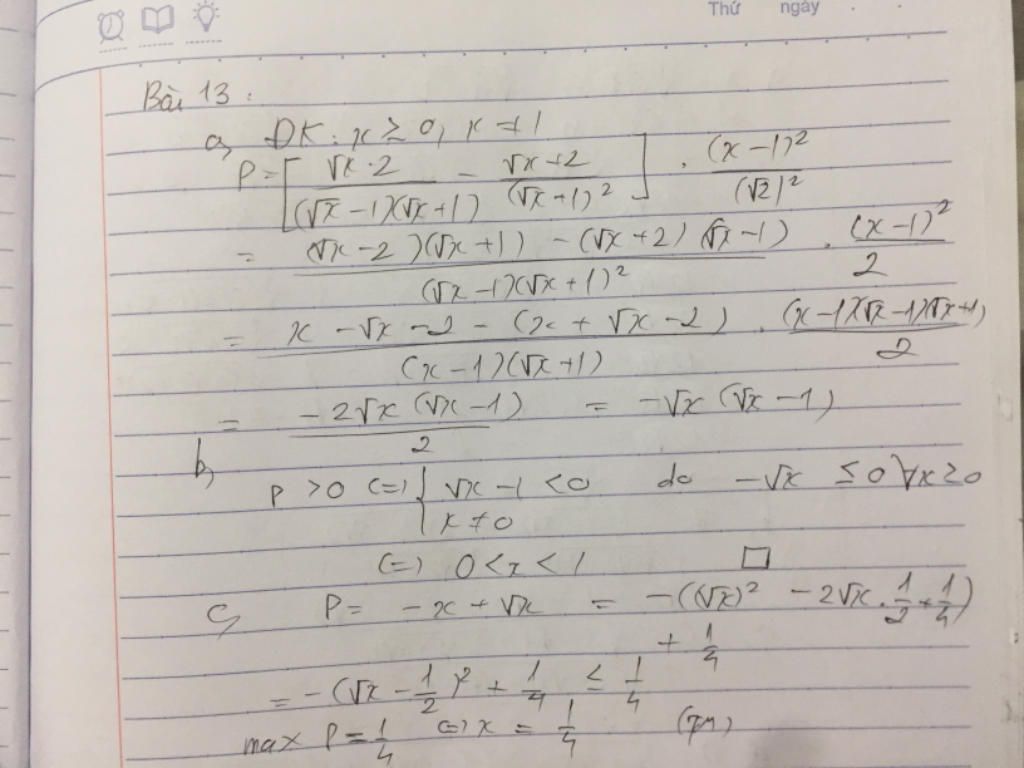 Thứ ngày
Bài 13:
a, ĐK: x ≥ 0, x ≠ 1
P = [ (√x - 2)/((√x - 1)(√x + 1)) - (√x + 2)/(√x + 1)² ] . (x - 1)²/(√2)²
= ((√x - 2)(√x + 1) - (√x + 2)(√x - 1))/((√x - 1)(√x + 1)²) . (x - 1)²/2
= (x - √x - 2 - (x + √x - 2))/((x - 1)(√x + 1)) . ((x - 1)(√x - 1)(√x + 1))/2
= (-2√x (√x - 1))/2 = -√x (√x - 1)
b,
P > 0 <=> { √x - 1 < 0 do -√x ≤ 0 ∀x ≥ 0
x ≠ 0
<=> 0 < x < 1 □
c, P = -x + √x = -((√x)² - 2√x . 1/2 + 1/4)
+ 1/4
= -(√x - 1/2)² + 1/4 ≤ 1/4
max P = 1/4 <=> x = 1/4 (TM)